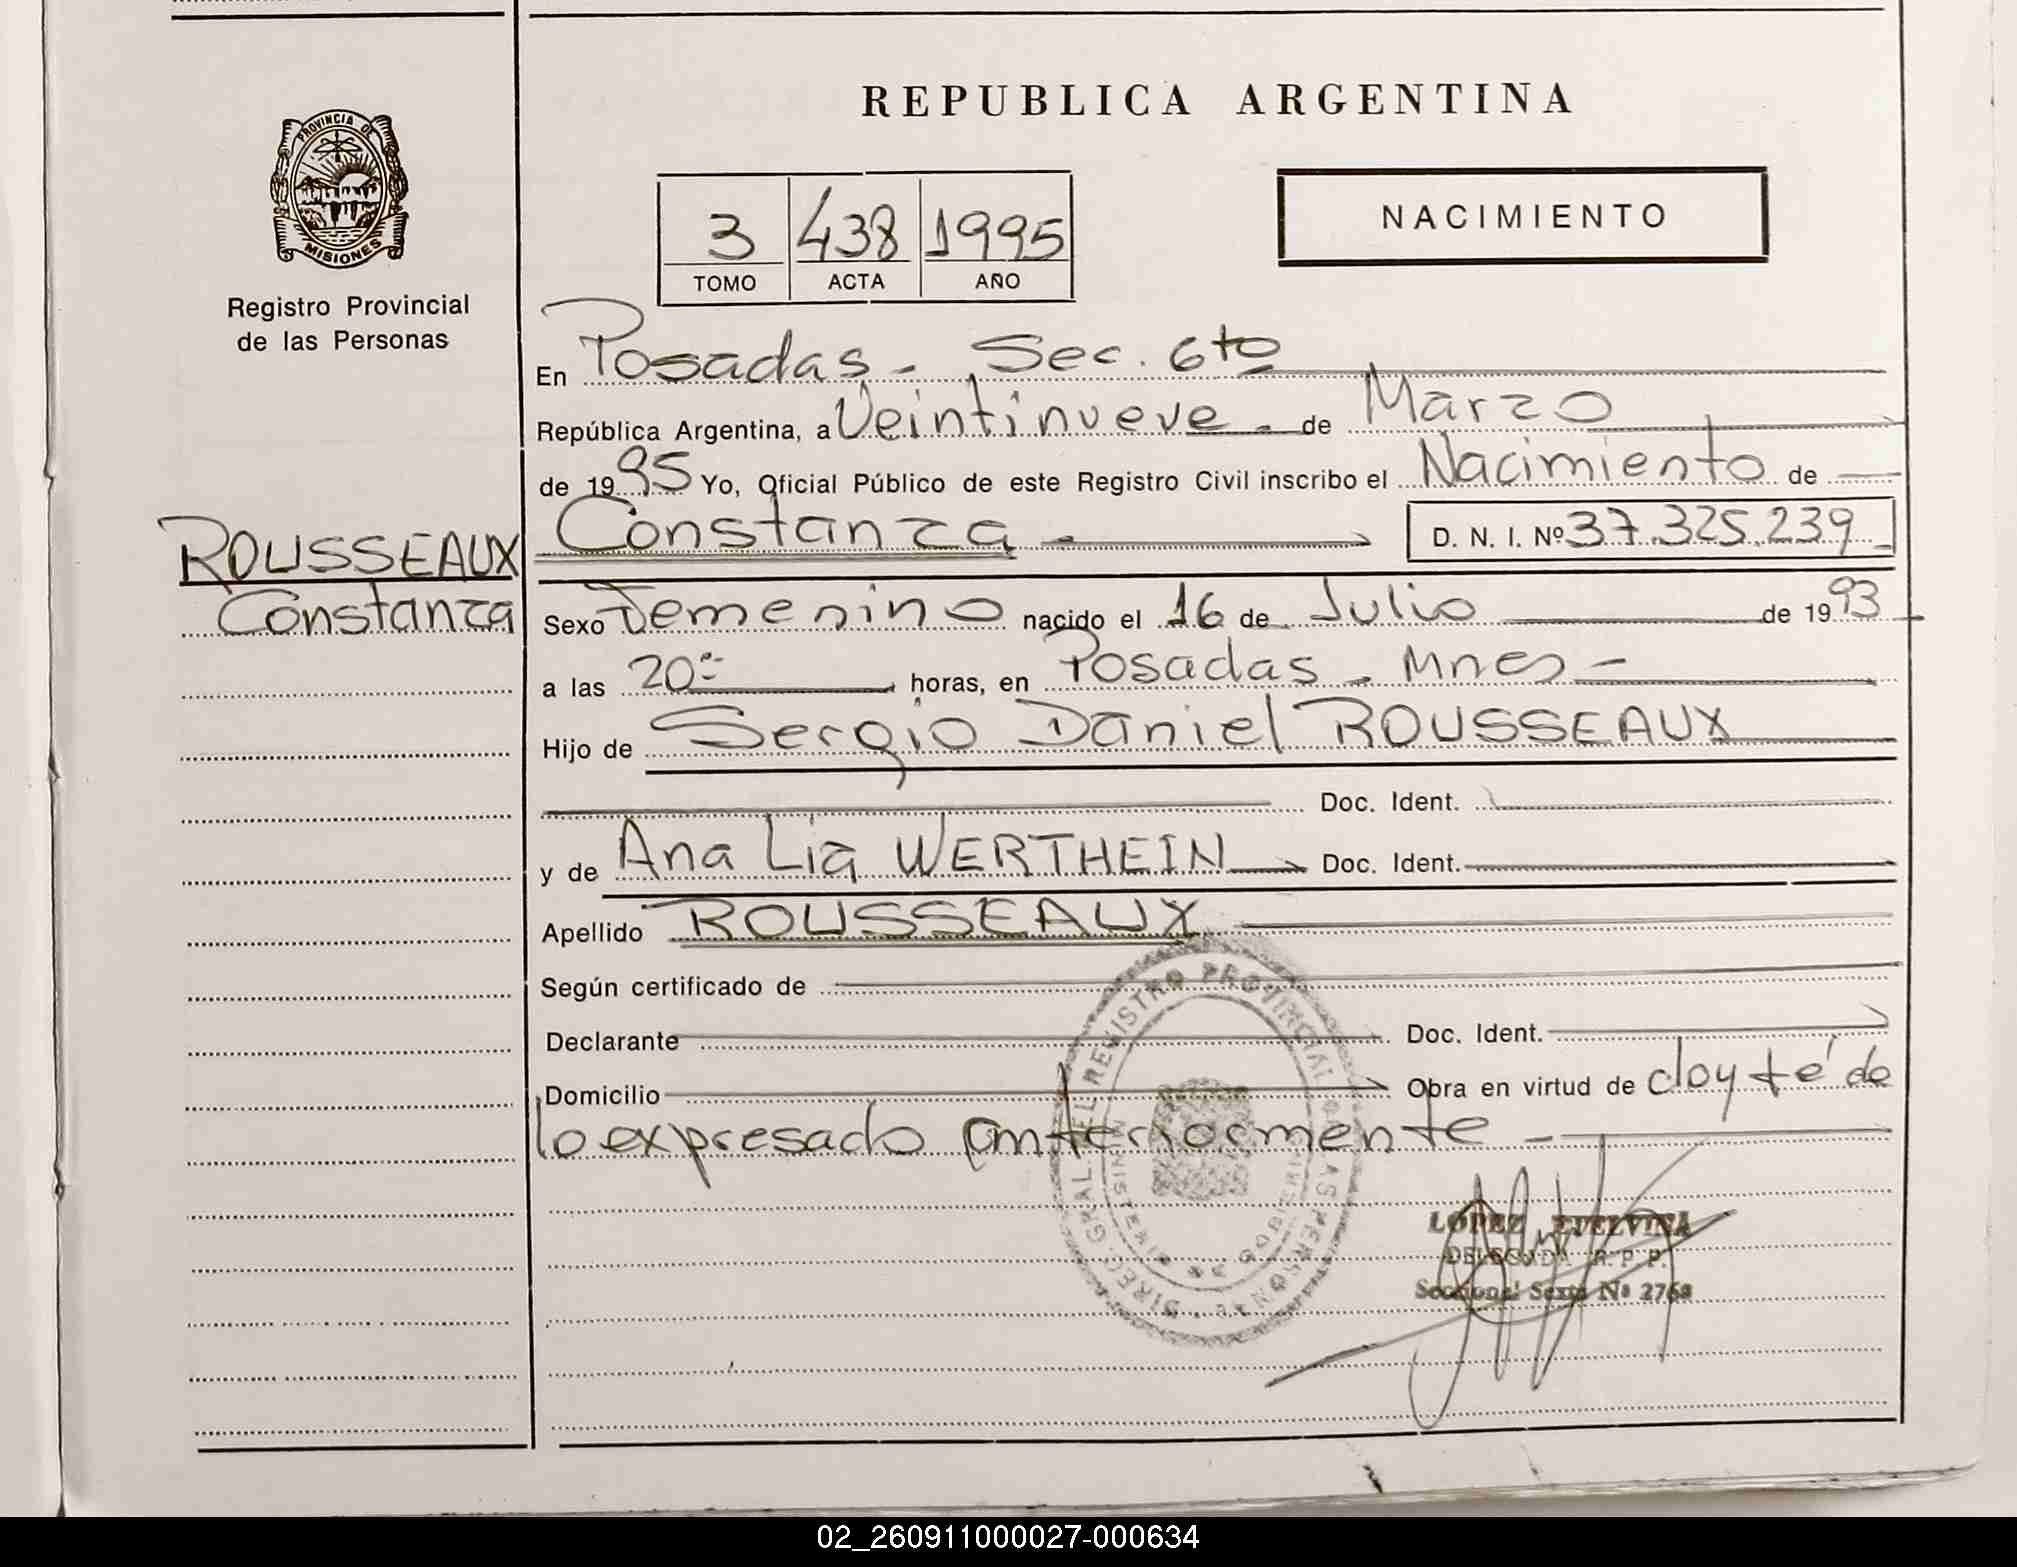 REPUBLICA ARGENTINA
PROVINCIA DE
MISIONES
Registro Provincial
de las Personas
NACIMIENTO
3 438 1995
TOMO ACTA AÑO
En Posadas - Sec. 6to
República Argentina, a Veintinueve - de Marzo
de 1995 Yo, Oficial Público de este Registro Civil inscribo el Nacimiento de
ROUSSEAUX
Constanza
Constanza D. N. I. Nº 37.325.239
Sexo Femenino nacido el 16 de Julio de 1993
a las 20 horas, en Posadas - Mnes -
Hijo de Sergio Daniel ROUSSEAUX
Doc. Ident.
y de Ana Lia WERTHEIN Doc. Ident.
Apellido ROUSSEAUX
Según certificado de
Declarante Doc. Ident.
Domicilio Obra en virtud de doy fé de
lo expresado anteriormente -
DIREC. GRAL. DEL REGISTRO PROVINCIAL DE LAS PERSONAS
LOPEZ
DELEGADA R. P. P.
Seccional Sexta Nº 2768
02_260911000027-000634